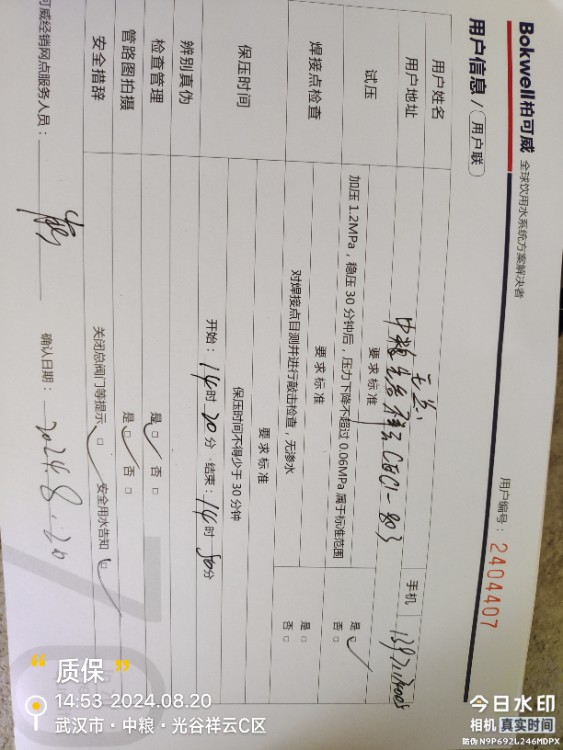 Bokwell柏可威 全球饮用水系统方案解决者
用户信息/用户联
用户编号：2404407
用户姓名
手机
用户地址 中粮光谷祥云C区C1-803
试压
要求标准
加压1.2MPa，稳压30分钟后，压力下降不超过0.06MPa属于标准范围
是□ 否□
焊接点检查
要求标准
对焊接点目测并进行敲击检查，无渗水
是□ 否□
保压时间
要求标准
保压时间不得少于30分钟
开始：14时20分·结束：14时50分
辨别真伪
检查管理 是□ 否□
管路图拍摄 是□ 否□
安全措辞 关闭总阀门等提示□ 安全用水告知□
可威经销网点服务人员：
确认日期：2024.8.20
“质保”
14:53 2024.08.20
武汉市·中粮·光谷祥云C区
今日水印
相机 真实时间
防伪 N9P692L246MDPX